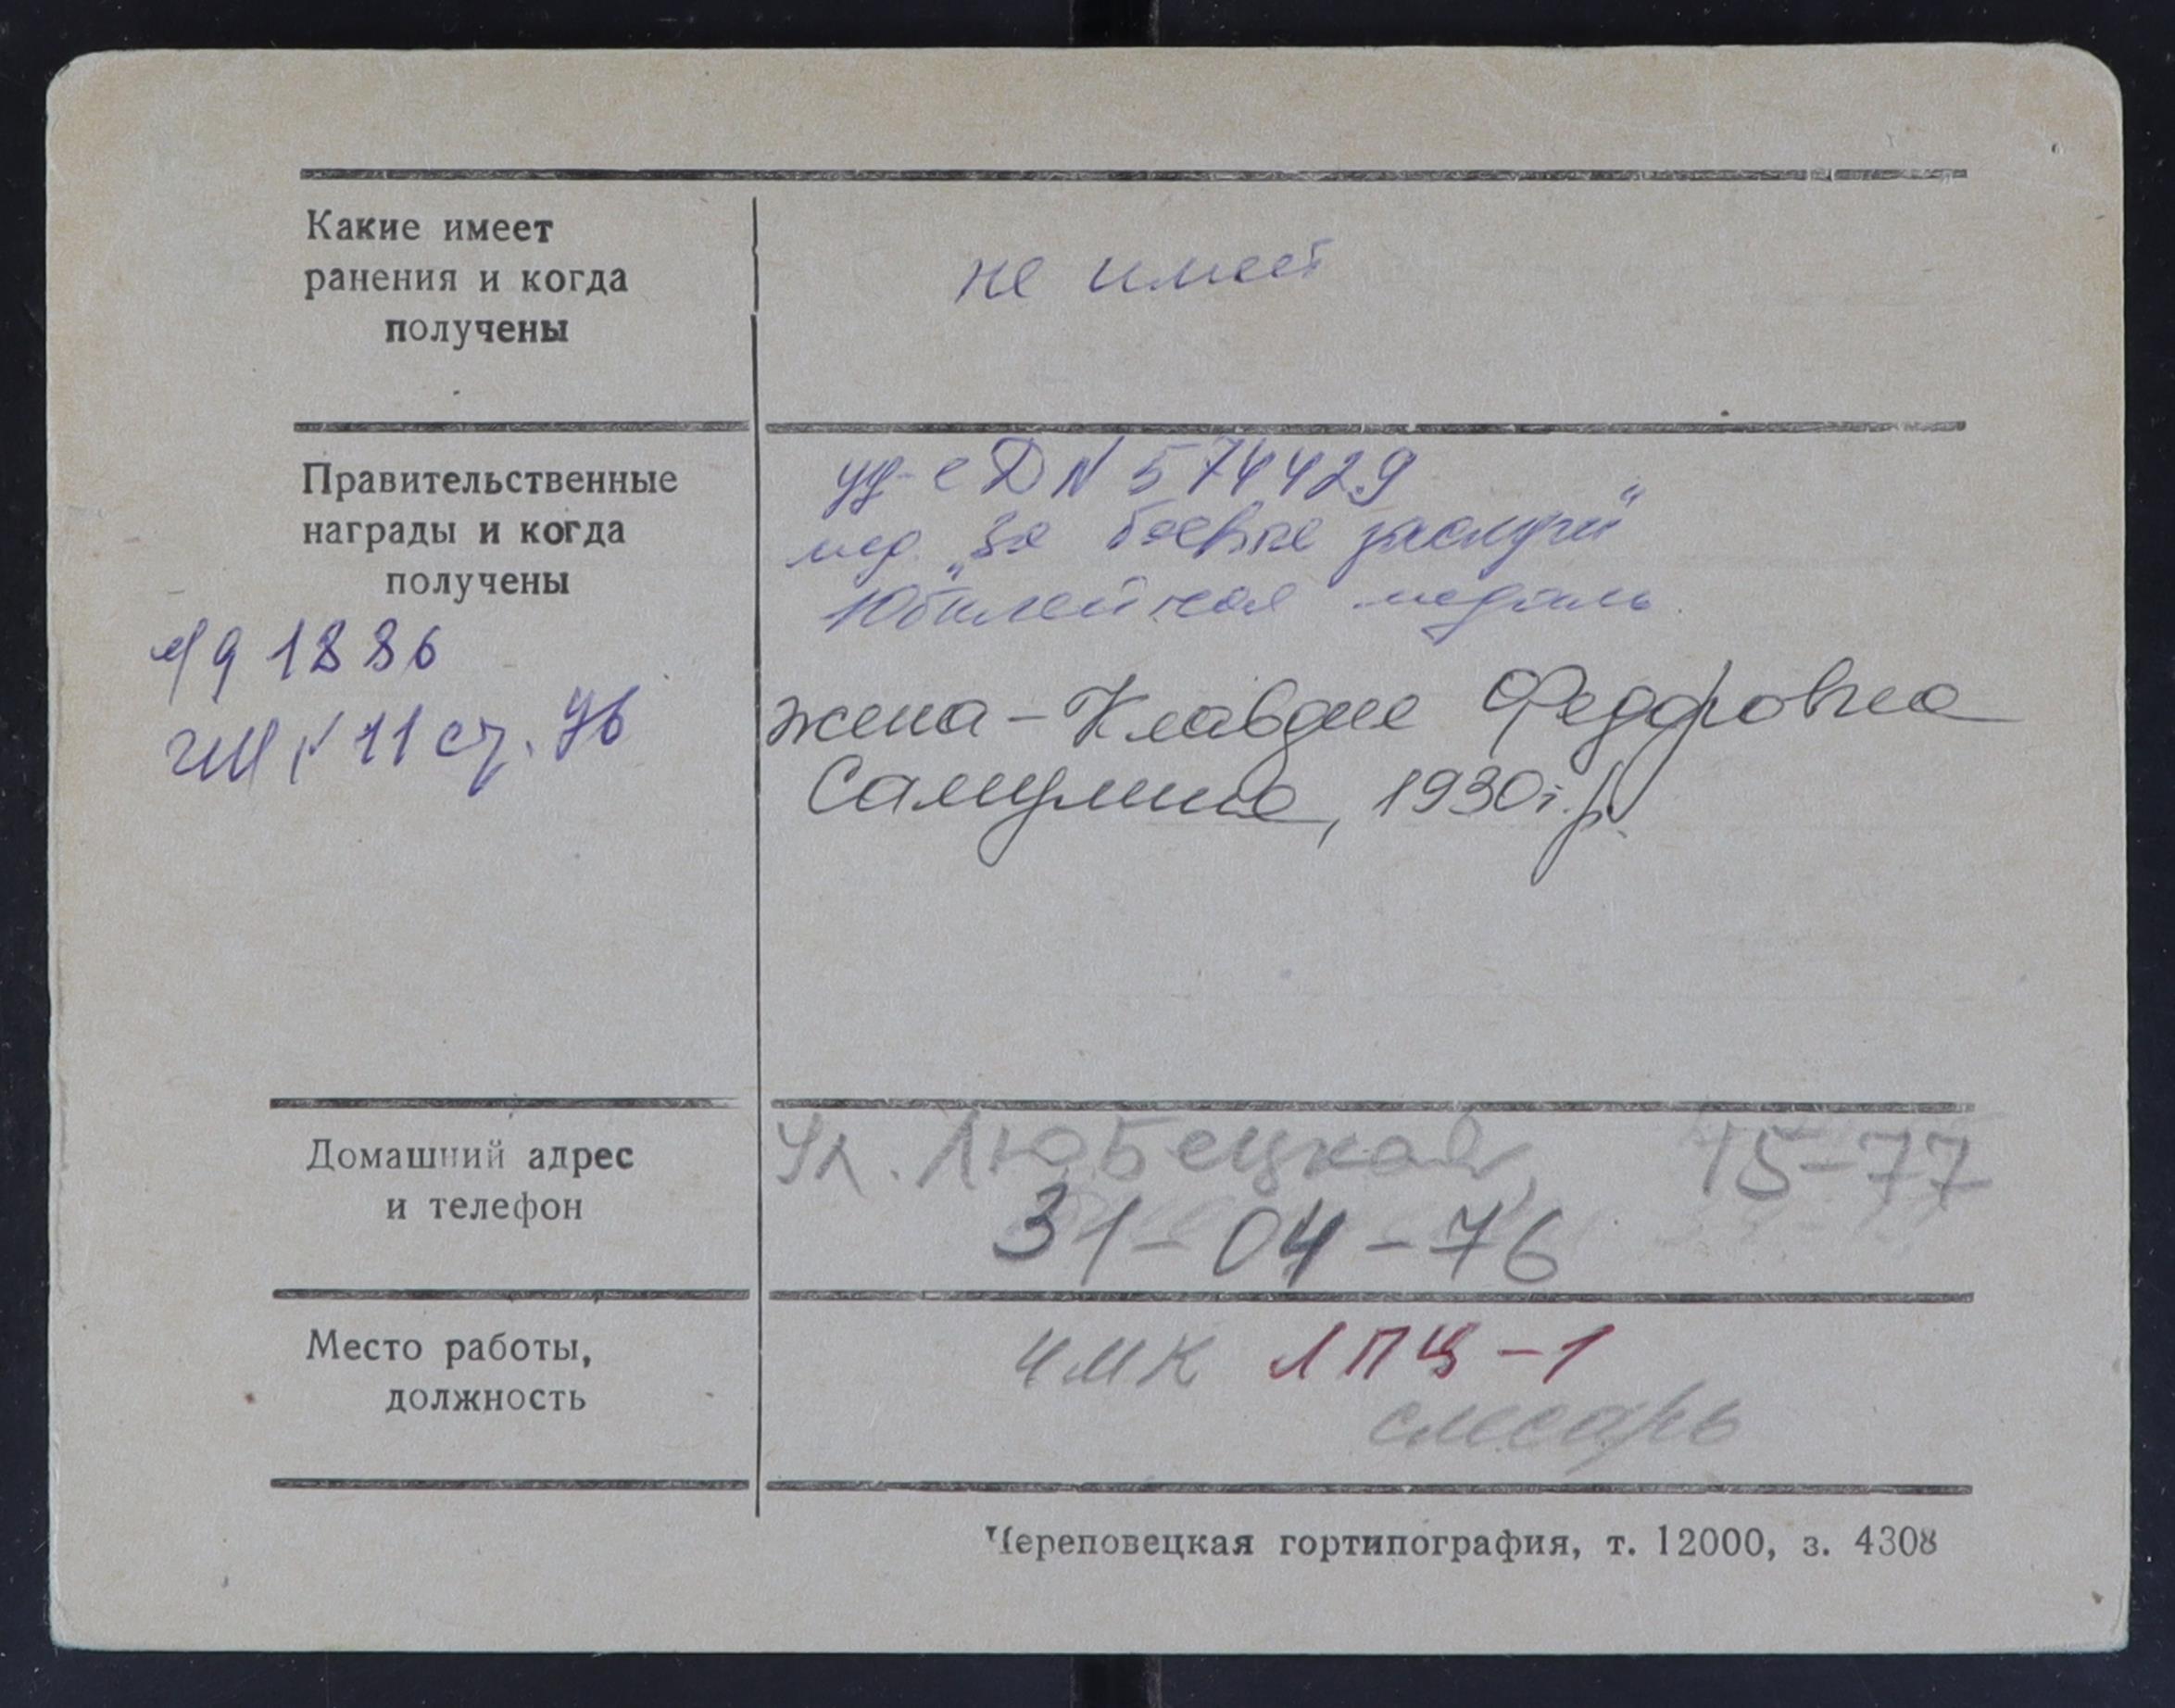 Какие имеет
ранения и когда
получены
не имеет
Правительственные
награды и когда
получены
уд-е Д N 574429
мед. „За боевые заслуги“
Юбилейная медаль.
1886
11 ст. 96
жена - Клавдия Федоровна
Самулина, 1930 г.р.
Домашний адрес
и телефон
Ул. Любецкая, 15-77
31-04-76
Место работы,
должность
ЧМК ЛПЦ-1
слесарь
Череповецкая гортипография, т. 12000, з. 4308